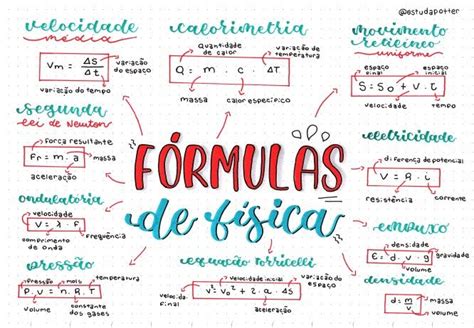 @estudapotter
velocidade
média
Vm = ΔS / Δt
variação do espaço
variação do tempo
calorimetria
quantidade de calor
variação de temperatura
Q = m . c . ΔT
massa
calor específico
movimento
retilíneo
uniforme
espaço final
espaço inicial
S = S₀ + v . t
velocidade
tempo
segunda
lei de Newton
força resultante
FR = m . a
massa
aceleração
FÓRMULAS
de física
eletricidade
diferença de potencial
V = R . i
resistência
corrente
ondulatória
velocidade
V = λ . F
comprimento de onda
frequência
empuxo
densidade
E = d . v . g
gravidade
volume
pressão
pressão
mols
temperatura
P . V = n . R . T
volume
constante dos gases
equação Torricelli
velocidade inicial
variação do espaço
V² = V₀² + 2 . a . ΔS
velocidade final
aceleração
densidade
d = m / v
massa
volume